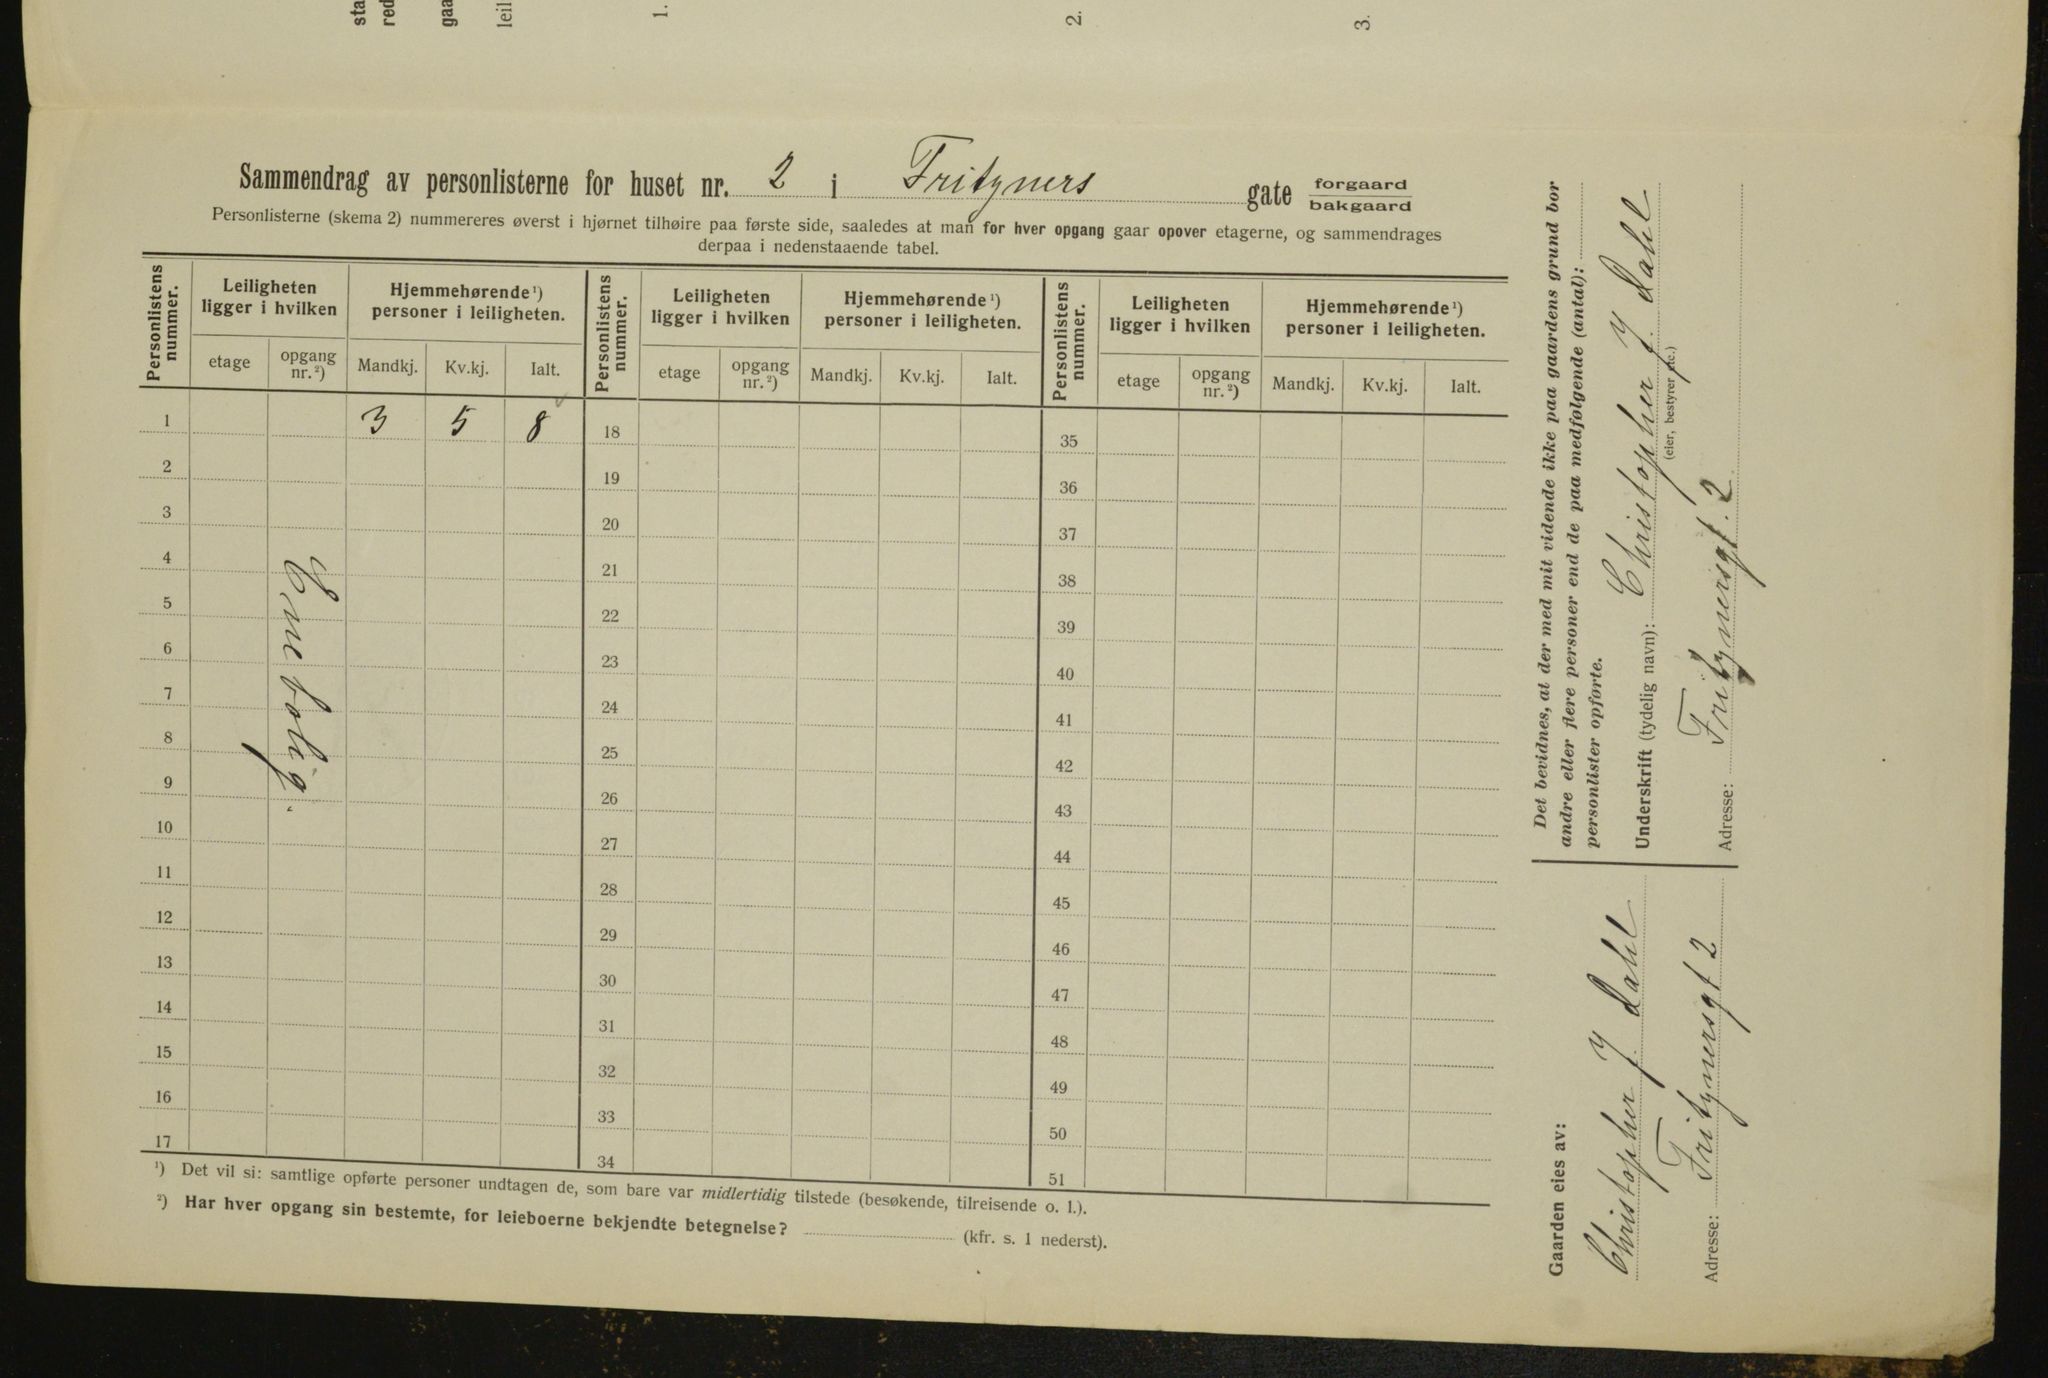 sta
red
gaa
leil
1.
2.
3.
Sammendrag av personlisterne for huset nr. 2 i Fritzners gate forgaard bakgaard
Personlisterne (skema 2) nummereres øverst i hjørnet tilhøire paa første side, saaledes at man for hver opgang gaar opover etagerne, og sammendrages
derpaa i nedenstaaende tabel.
Personlistens nummer. Leiligheten ligger i hvilken Hjemmehørende ¹) personer i leiligheten. Personlistens nummer. Leiligheten ligger i hvilken Hjemmehørende ¹) personer i leiligheten. Personlistens nummer. Leiligheten ligger i hvilken Hjemmehørende ¹) personer i leiligheten.
etage opgang nr. ²) Mandkj. Kv.kj. Ialt. etage opgang nr. ²) Mandkj. Kv.kj. Ialt. etage opgang nr. ²) Mandkj. Kv.kj. Ialt.
1 3 5 8 18 35
2 19 36
3 20 37
4 21 38
5 22 39
6 23 40
7 24 41
8 25 42
9 26 43
10 27 44
11 28 45
12 29 46
13 30 47
14 31 48
15 32 49
16 33 50
17 34 51
Enebolig.
¹) Det vil si: samtlige opførte personer undtagen de, som bare var midlertidig tilstede (besøkende, tilreisende o. l.).
²) Har hver opgang sin bestemte, for leieboerne bekjendte betegnelse? (kfr. s. 1 nederst).
Det bevidnes, at der med mit vidende ikke paa gaardens grund bor
andre eller flere personer end de paa medfølgende (antal):
personlister opførte.
Underskrift (tydelig navn): Christopher J. Dahl
(eier, bestyrer etc.)
Adresse: Fritznersgt. 2
Gaarden eies av:
Christopher J Dahl
Adresse: Fritznersgt 2